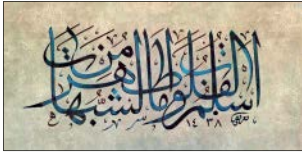 اسلم القلوب ما طهر من الشبهات
١٤٣٨